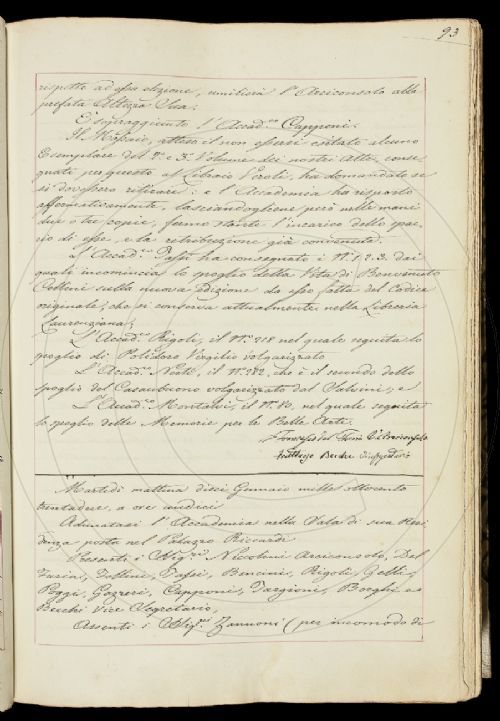 93
rispetto ad essa elezione, umilierà l'Arciconsolo alla
prefata Altezza Sua.
È sopraggiunto l'Accad.co Capponi.
Il Massaio, atteso il non essersi esitato alcuno
Esemplare del 2.o e 3.o Volume dei nostri Atti, conse
gnati per questo al Libraio Veroli, ha domandato se
si dovessero ritirare: e l'Accademia ha risposto
affermativamente, lasciandogliene però nelle mani
due o tre copie, fermo stante l'incarico dello spac
cio di esse, e la retribuzione già convenuta.
L'Accad.co Tassi ha consegnato i N.i 1. 2. 3. dai
quali incomincia lo spoglio della Vita di Benvenuto
Cellini sulla nuova edizione da esso fatta del Codice
originale, che si conserva attualmente nella Libreria
Laurenziana;
L'Accad.co Rigoli, il N.o 218 nel quale seguita lo
spoglio di Polidoro Virgilio volgarizzato
L'Accad.co Nesti, il N.o 282, che è il secondo dello
spoglio del Casaubuono volgarizzato dal Salvini; e
L'Accad.co Montalvi, il N.o 80, nel quale seguita
lo spoglio delle Memorie per le Belle Arti.
Francesco del Furia
Fruttuoso Becchi
Martedì mattina dieci Gennaio mille ottocento
trentadue, a ore undici
Adunatasi l'Accademia nella Sala di sua Resi
denza posta nel Palazzo Riccardi
Presenti i Sig.ri Niccolini Arciconsolo, Del
Furia, Follini, Tassi, Bencini, Rigoli, Gelli,
Poggi, Gazzeri, Capponi, Targioni, Borghi e
Becchi Vice Segretario,
Assenti i Sig.ri Zannoni (per incomodo di